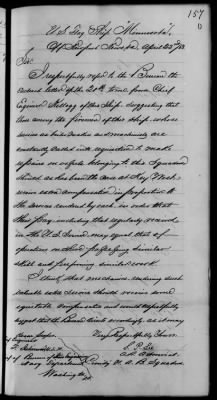 157
U.S. Flag Ship Minnesota,
Off Newport News, Va, April 23d /63
Sir:
I respectfully refer to the Bureau the
enclosed letter of the 20th inst. from Chief
Engineer Kellogg of this Ship, suggesting that
men among the firemen of this Ship whose
services as boiler makers and machinists are
constantly called into requisition to make
repairs on vessels belonging to this Squadron
should, as has been the case at Key West,
receive extra compensation in proportion to
the services rendered by each, in order that
their pay, including that regularly received
in the U.S. Service may equal that of
operatives on shore possessing similar
skill and performing similar work.
I think that mechanics rendering such
valuable extra services should receive some
equitable compensation and would respectfully
suggest that the Bureau
Very Respectfully Yours,
S. P. Lee
Bureau of
Navy Department
Washington